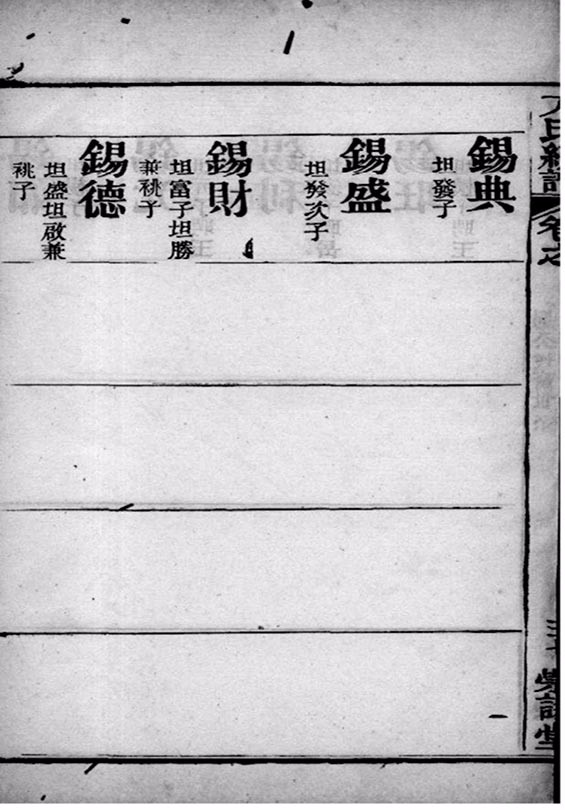 氏
卷之
錫典
坦發子
錫盛
坦發次子
錫財
坦富子坦勝
兼祧子
錫德
坦盛坦啟兼
祧子